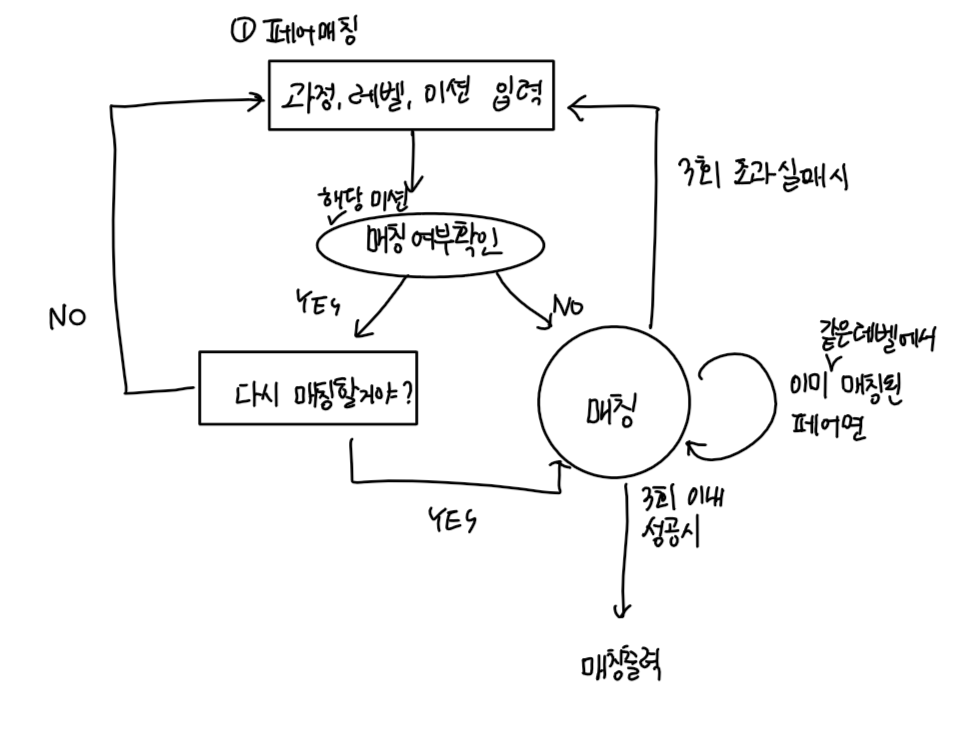 ① 페어매칭
과정, 레벨, 미션 입력
해당 미션
매칭 여부확인
YES
NO
NO
다시 매칭할거야?
YES
매칭
3회 초과실패시
같은레벨에서
이미 매칭된
페어면
3회 이내
성공시
매칭출력